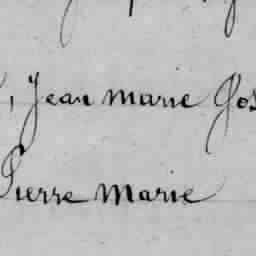 , Jean Marie Jos
Pierre Marie